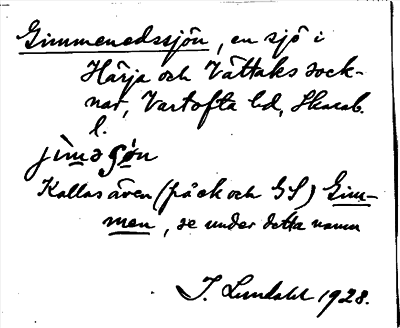 Gimmenedssjön, en sjö i
Härja och Vättaks sock-
nar, Vartofta hd, Skarab.
l.
jìməʃón
Kallas även (på ek och GS) Gim-
men, se under detta namn
J. Lundahl 1928.